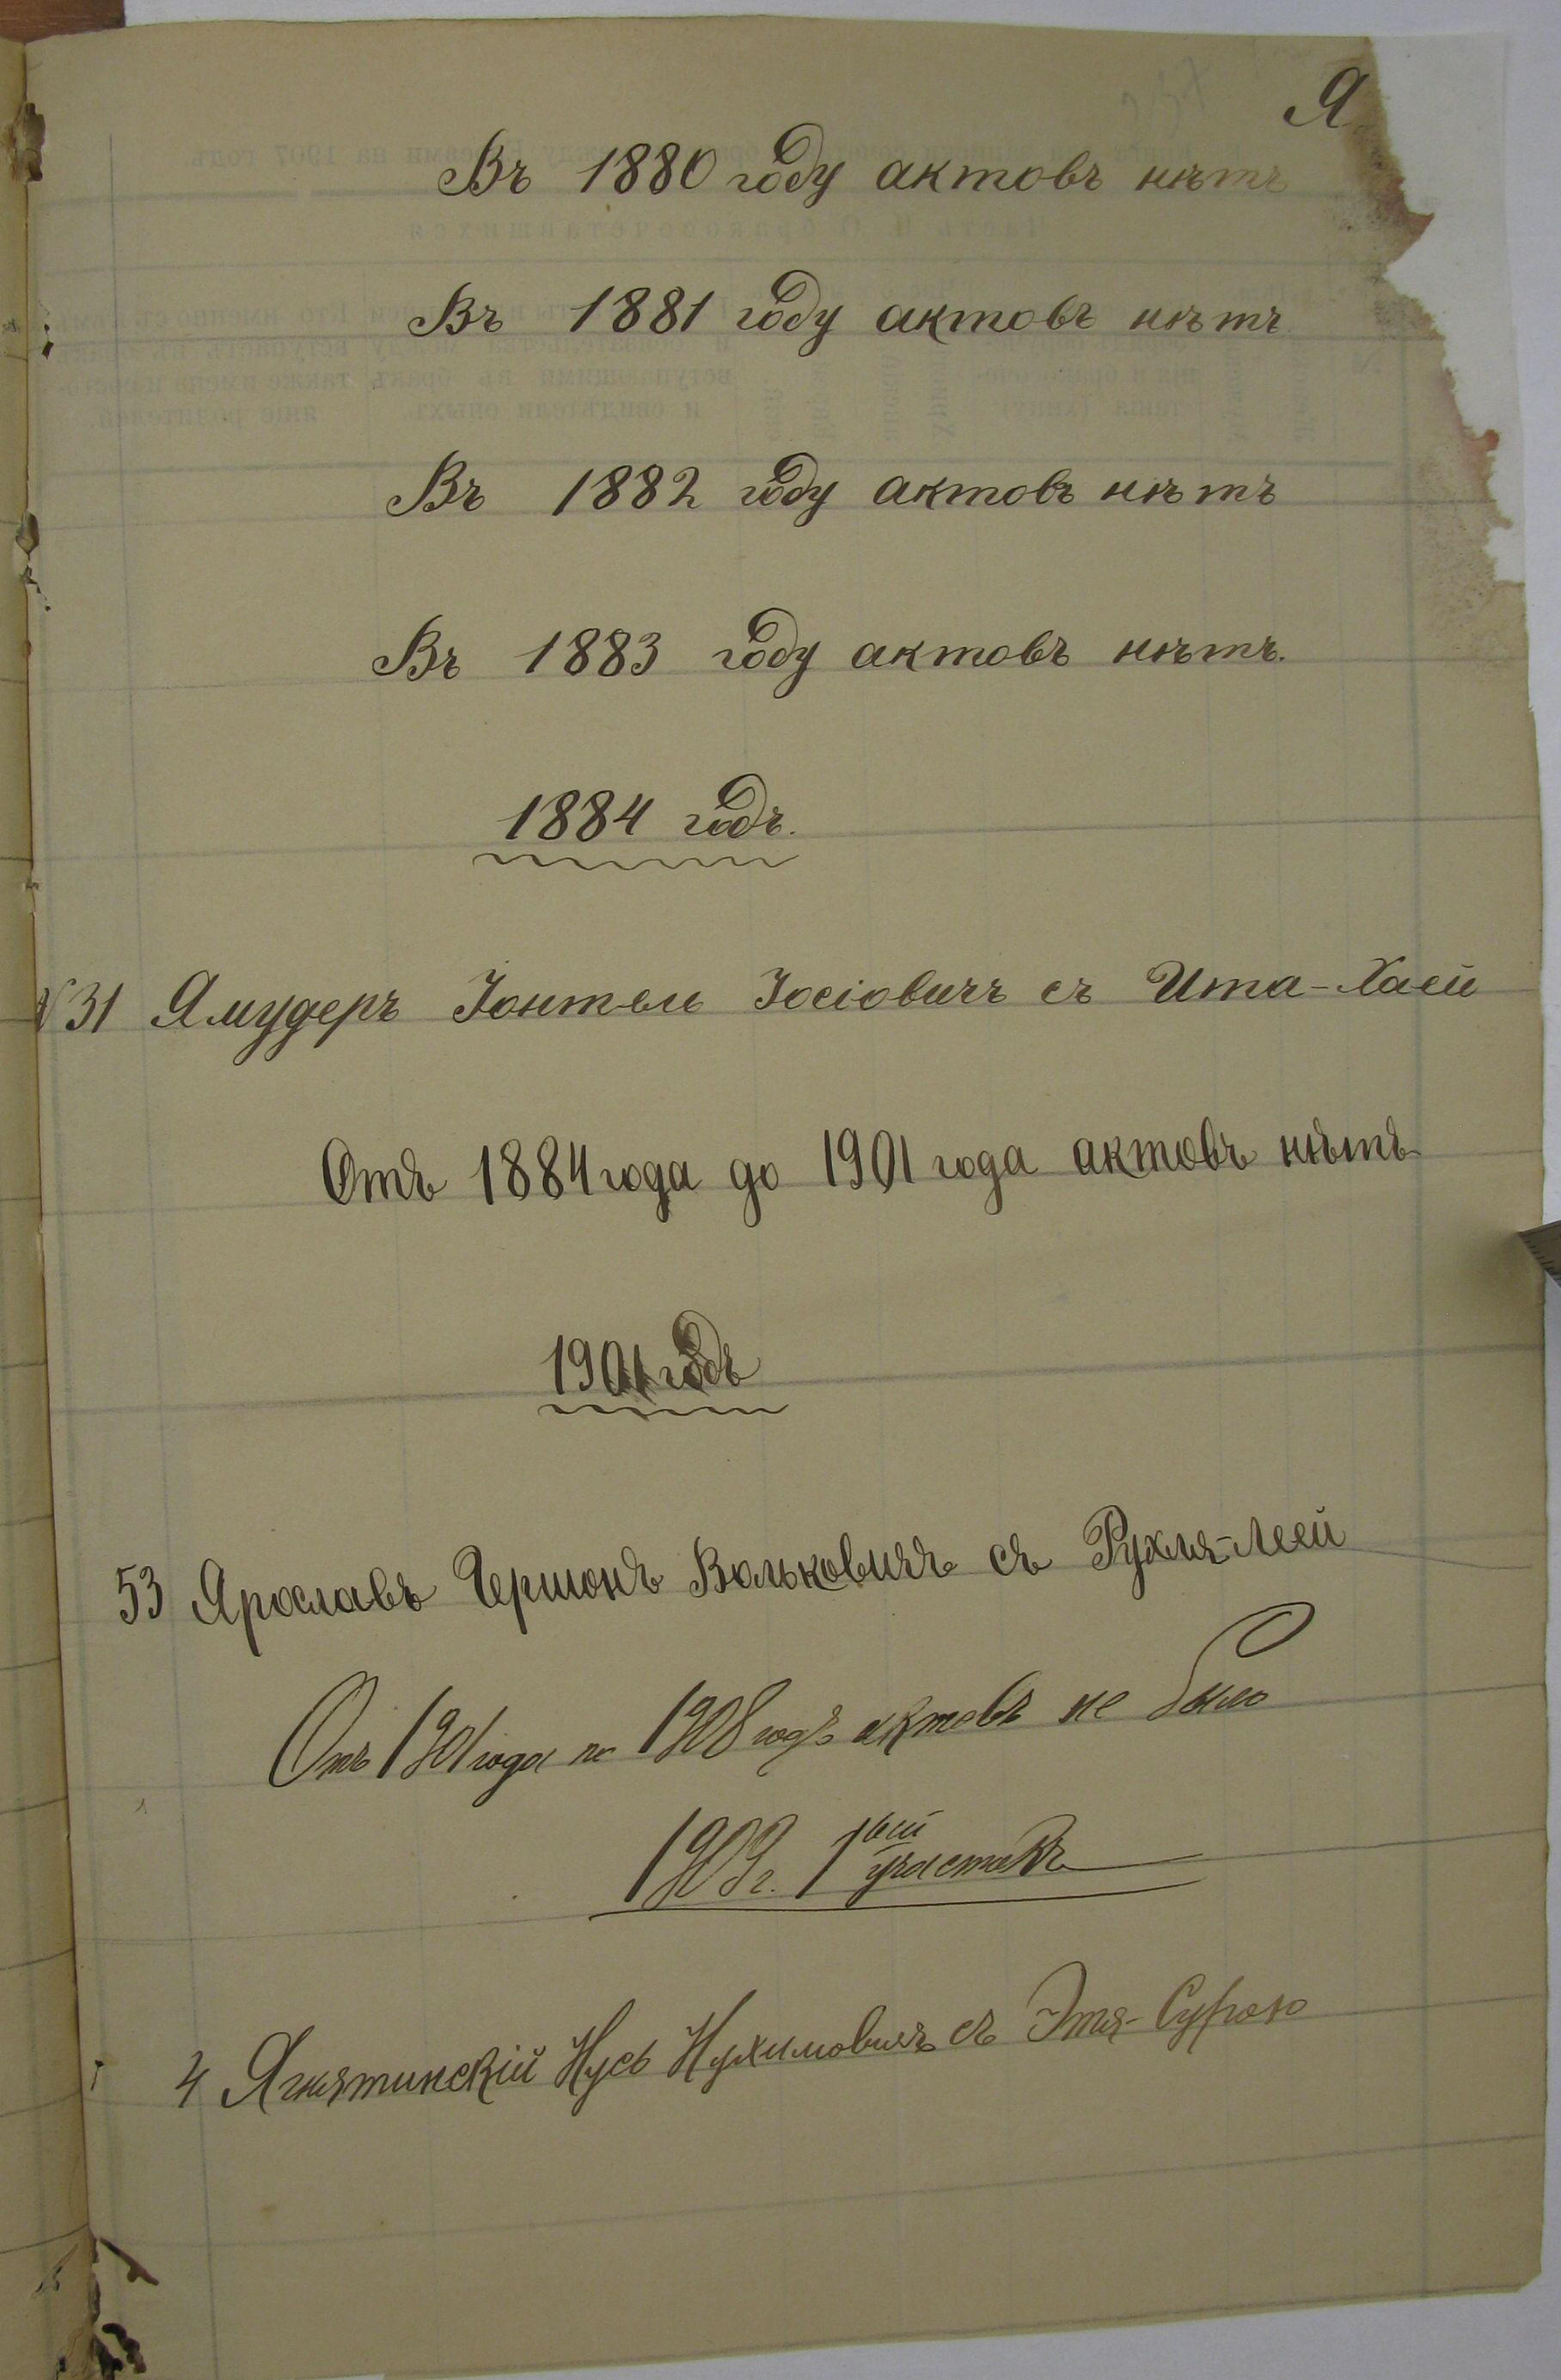 Я
Въ 1880 году актовъ нѣтъ
Въ 1881 году актовъ нѣтъ
Въ 1882 году актовъ нѣтъ
Въ 1883 году актовъ нѣтъ.
1884 годъ.
№ 31 Ямудеръ Іонтель Іосіовичъ съ Ита-Хаей
Отъ 1884 года до 1901 года актовъ нѣтъ
1901 годъ
53 Ярославъ Гершонъ Вольковичъ съ Рухля-Леей
Отъ 1901 года по 1908 годъ актовъ не было
1909 г. 1ый участокъ
4 Ягнятинскій Нусь Нухимовичъ съ Этя-Сурою